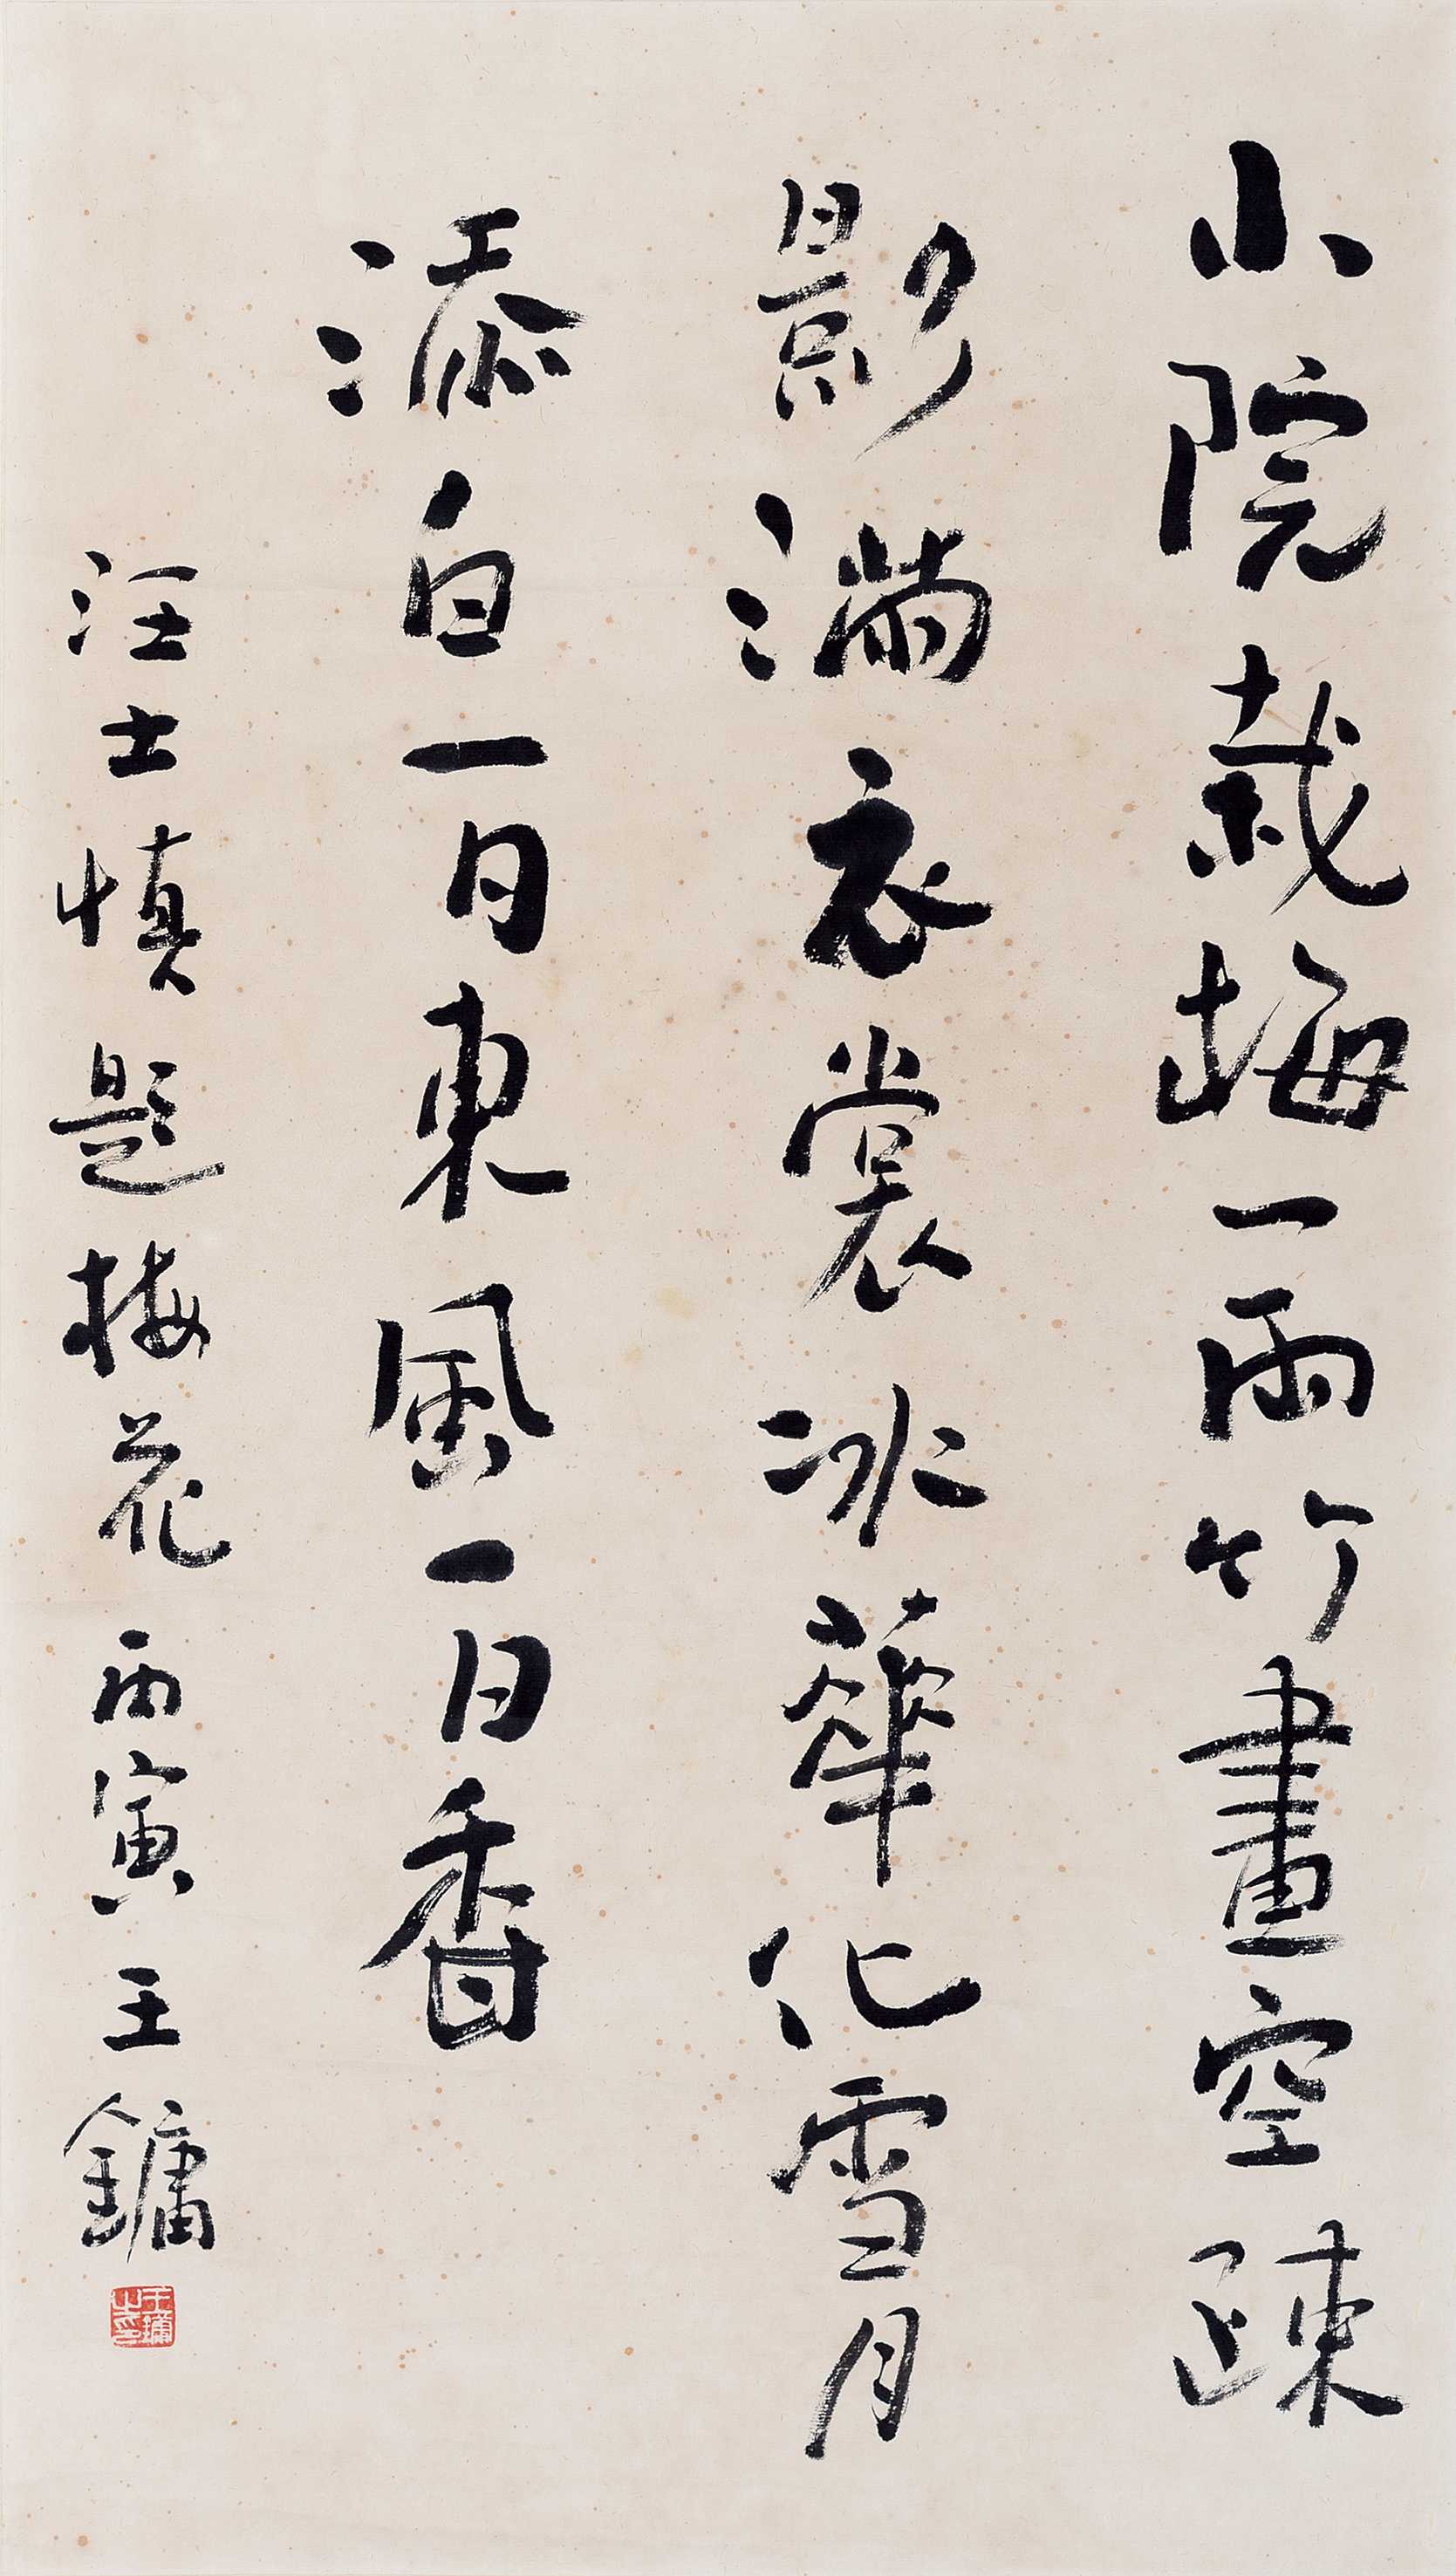 小院栽梅一兩竹畫空疎
影滿衣裳冰華化雪月
添白一日東風一日香
汪士慎題梅花丙寅王鏞
王鏞之印